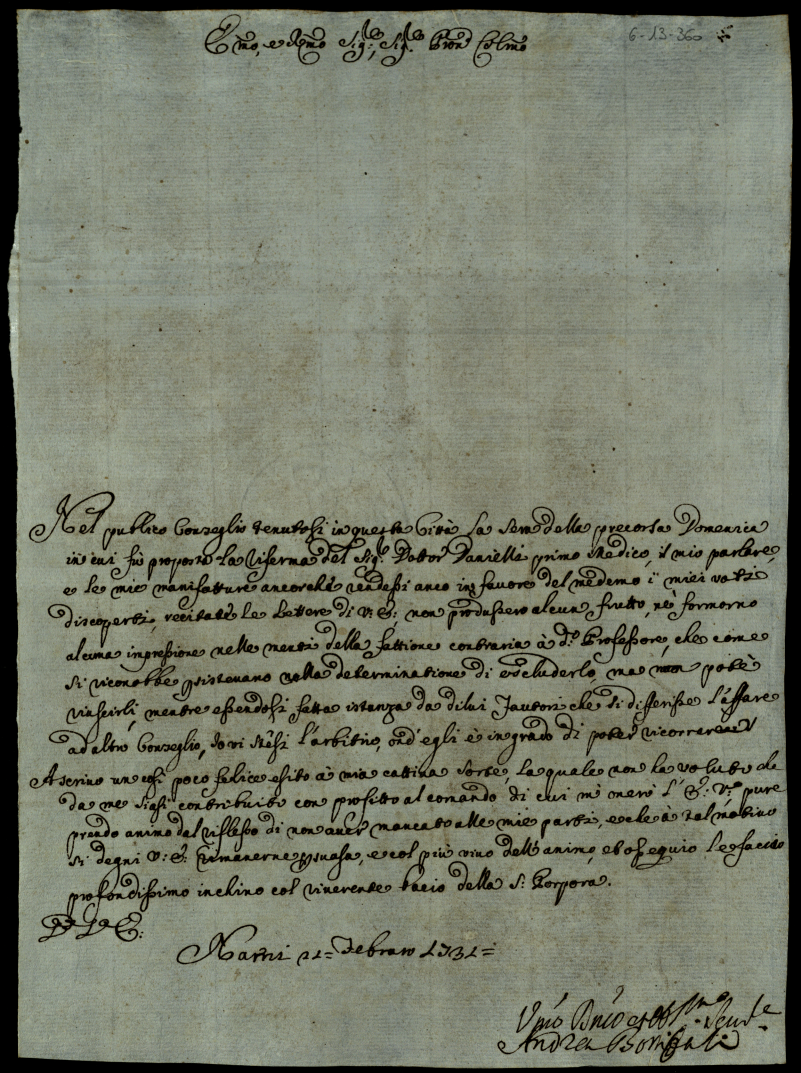 Emo, e Rmo Sig:r, Sig:r Pron Colmo
6-13-360
Nel publico Conseglio tenutosi in questa Città la sera della precorsa Domenica
in cui fù proposta la riferma del Sig:r Dottor Danielli primo Medico, il mio parlare,
e le mie manifatture ancorché rendessi anco in favore del medemo ii miei voti
discoperti, recitate le lettere di V: E: non produssero alcun frutto, nè formorno
alcuna impressione nelle menti della fattione contraria à d:o Professore, che come
si riconobbe psistevano nella determinatione di escluderlo, ma non potè
riuscirli, mentre essendosi fatta istanza da di lui Fautori che si differisse l'affare
ad altro Conseglio, Io vi stesi l'arbitrio, ond'egli è in grado di poter ricorrere
Ascrivo un così poco felice esito à mia cattiva sorte, la quale non ha voluto che
da me siasi contribuito con profitto al comando di cui mi onorò l'E: V:ra pure
prendo animo dal riflesso di non aver mancato alle mie parti, e che à tal motivo
si degni V: E: rimanerne psuasa, e col più vivo dell'animo, et ossequio le faccio
profondissimo inchino col riverente bacio della S: Porpora.
Di V: E:
Narni 21= Febraro 1731=
Vmo Dmo et Obb:mo Seru:re
Andrea